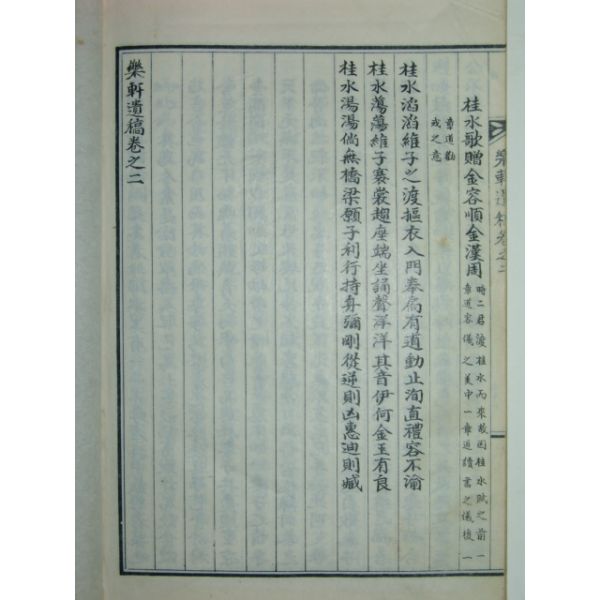 樂軒遺稿卷之二
桂水歌贈金容順金漢周
時二君渡桂水而來故因桂水賦之前一
章道容儀之美中一章道讀書之儀後一
章道勸
戒之意
桂水滔滔維子之渡摳衣入門奉扃有道動止洵直禮容不渝
桂水蕩蕩維子褰裳趨座端坐誦聲洋洋其音伊何金玉有良
桂水湯湯倘無橋梁願子利行持身彌剛從逆則凶惠迪則臧
樂軒遺稿卷之二